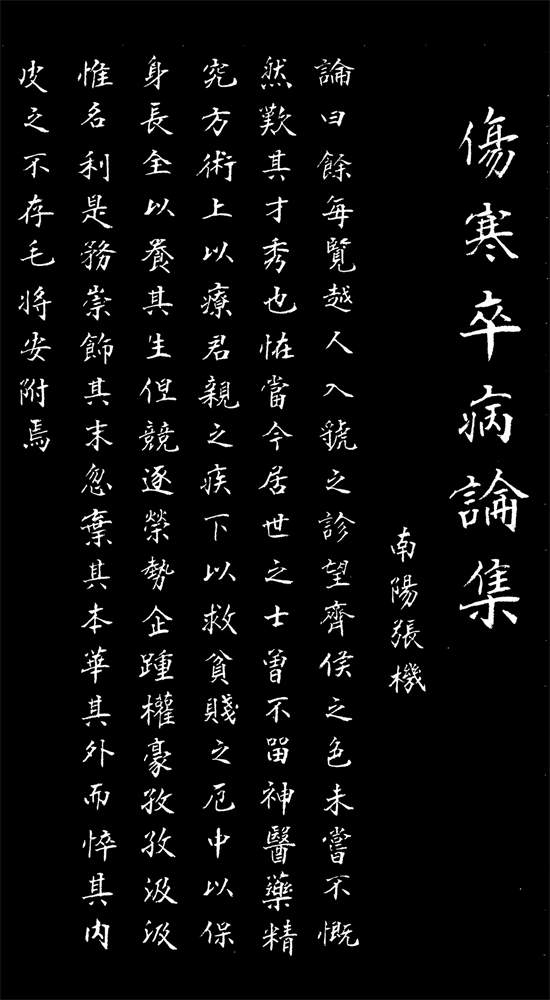 傷寒卒病論集
南陽張機
論曰餘每覽越人入虢之診望齊侯之色未嘗不慨
然歎其才秀也怪當今居世之士曾不留神醫藥精
究方術上以療君親之疾下以救貧賤之厄中以保
身長全以養其生但競逐榮勢企踵權豪孜孜汲汲
惟名利是務崇飾其末忽棄其本華其外而悴其內
皮之不存毛將安附焉